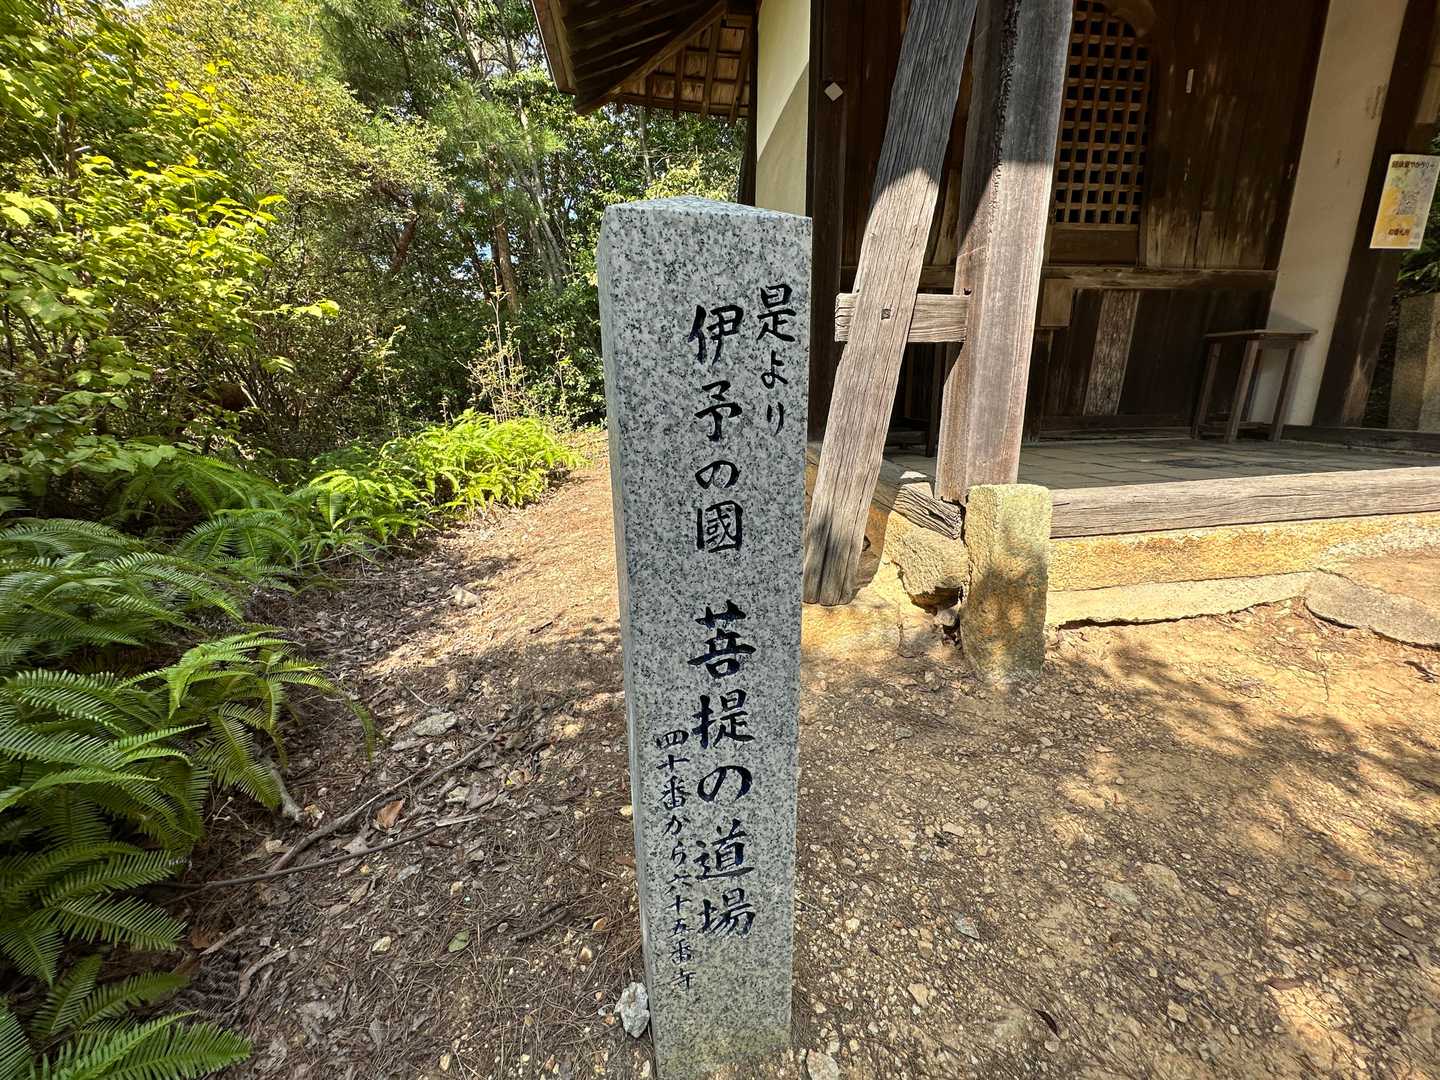 是より
伊予の國 菩提の道場
四十番から六十五番寺